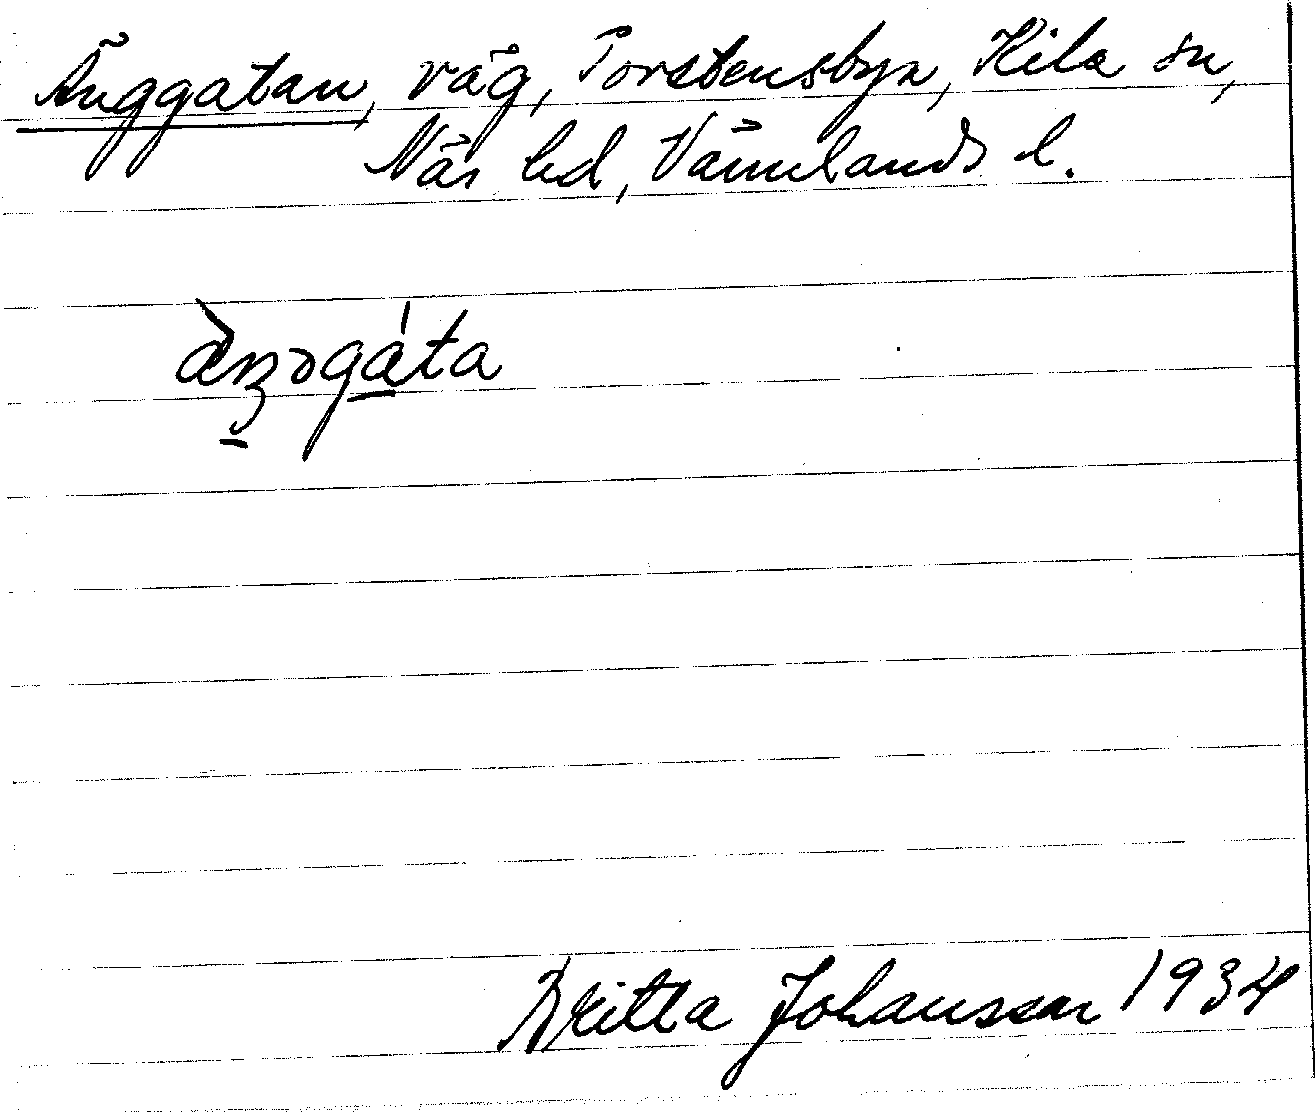 Änggatan, väg, Torstensbyn, Kila sn,
Näs hd, Värmlands l.
àŋəgáta
Britta Johansson 1934